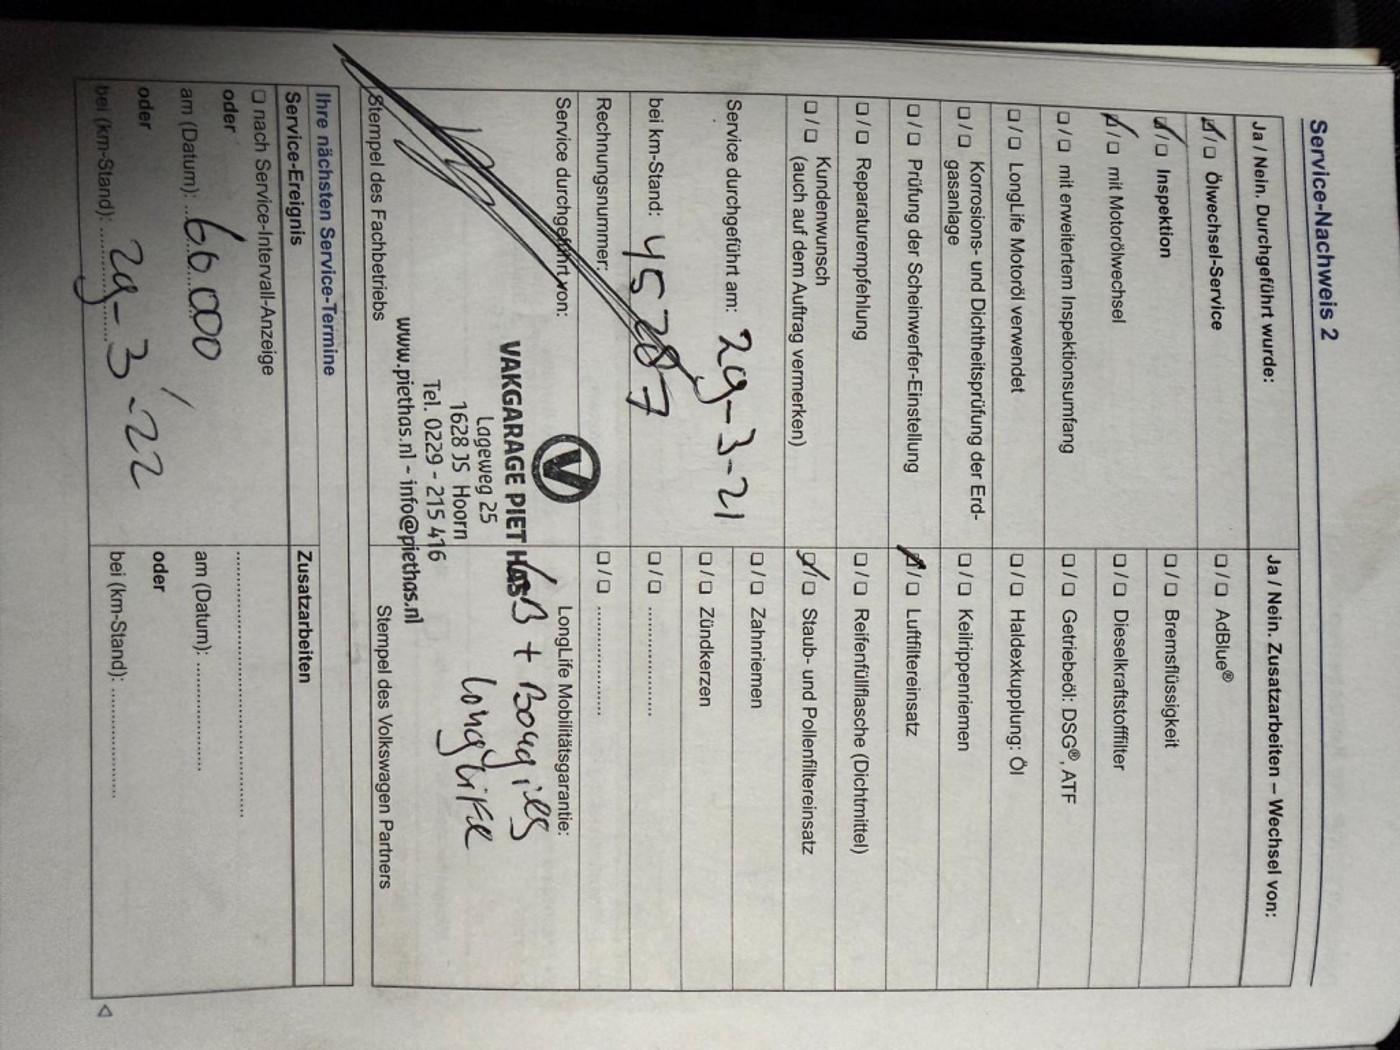 Service-Nachweis 2
Ja / Nein. Durchgeführt wurde:
Ja / Nein. Zusatzarbeiten – Wechsel von:
☑ / ☐ Ölwechsel-Service
☐ / ☐ AdBlue®
☑ / ☐ Inspektion
☐ / ☐ Bremsflüssigkeit
☑ / ☐ mit Motorölwechsel
☐ / ☐ Dieselkraftstofffilter
☐ / ☐ mit erweitertem Inspektionsumfang
☐ / ☐ Getriebeöl: DSG®, ATF
☐ / ☐ LongLife Motoröl verwendet
☐ / ☐ Haldexkupplung: Öl
☐ / ☐ Korrosions- und Dichtheitsprüfung der Erd-
gasanlage
☐ / ☐ Keilrippenriemen
☐ / ☐ Prüfung der Scheinwerfer-Einstellung
☑ / ☐ Luftfiltereinsatz
☐ / ☐ Reparaturempfehlung
☐ / ☐ Reifenfüllflasche (Dichtmittel)
☐ / ☐ Kundenwunsch
(auch auf dem Auftrag vermerken)
☑ / ☐ Staub- und Pollenfiltereinsatz
Service durchgeführt am: 29-3-21
☐ / ☐ Zahnriemen
☐ / ☐ Zündkerzen
bei km-Stand: 45287
☐ / ☐ ..............
Rechnungsnummer:
☐ / ☐ ..............
Service durchgeführt von:
LongLife Mobilitätsgarantie:
V
VAKGARAGE PIET HAS
Lageweg 25
1628 JS Hoorn
Tel. 0229 - 215 416
www.piethas.nl - info@piethas.nl
+ Bougies
LongLife
Stempel des Fachbetriebs
Stempel des Volkswagen Partners
Ihre nächsten Service-Termine
Service-Ereignis
Zusatzarbeiten
☐ nach Service-Intervall-Anzeige
oder
am (Datum): 66000
am (Datum): ..............
oder
oder
bei (km-Stand): 29-3-'22
bei (km-Stand): ..............